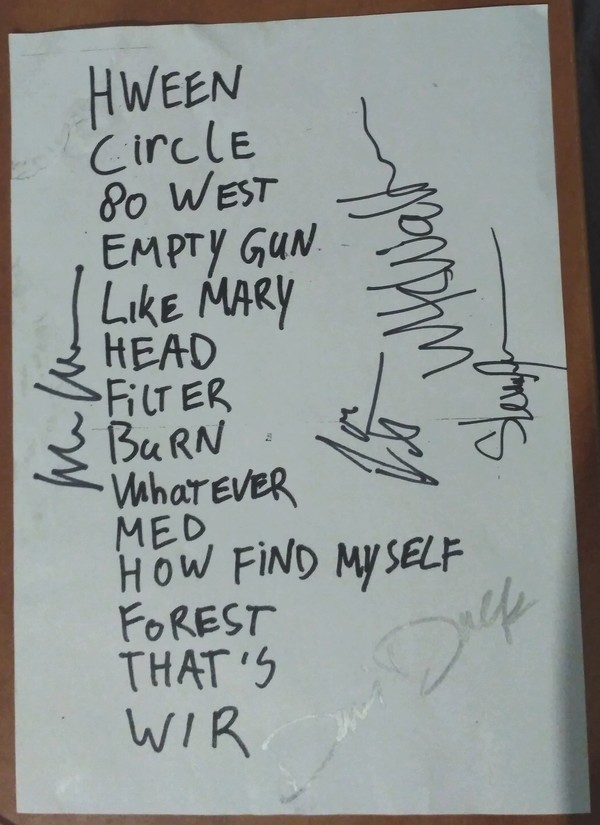 HWEEN
CircLE
80 WEST
EMPTY GUN
LiKE MARY
HEAD
FiLTER
BuRN
WhaTEVER
MED
HOW FiND MYSELF
FoREST
THAT'S
WIR